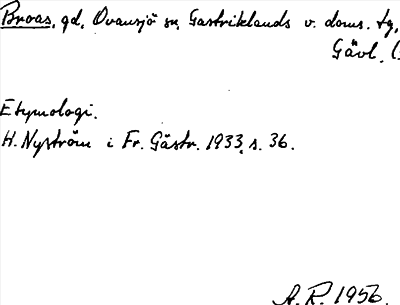 Broas, gd, Ovansjö sn, Gästriklands v. doms. tg,
Gävl. l.
Etymologi.
H. Nyström i Fr. Gästr. 1933, s. 36.
A. R. 1956.